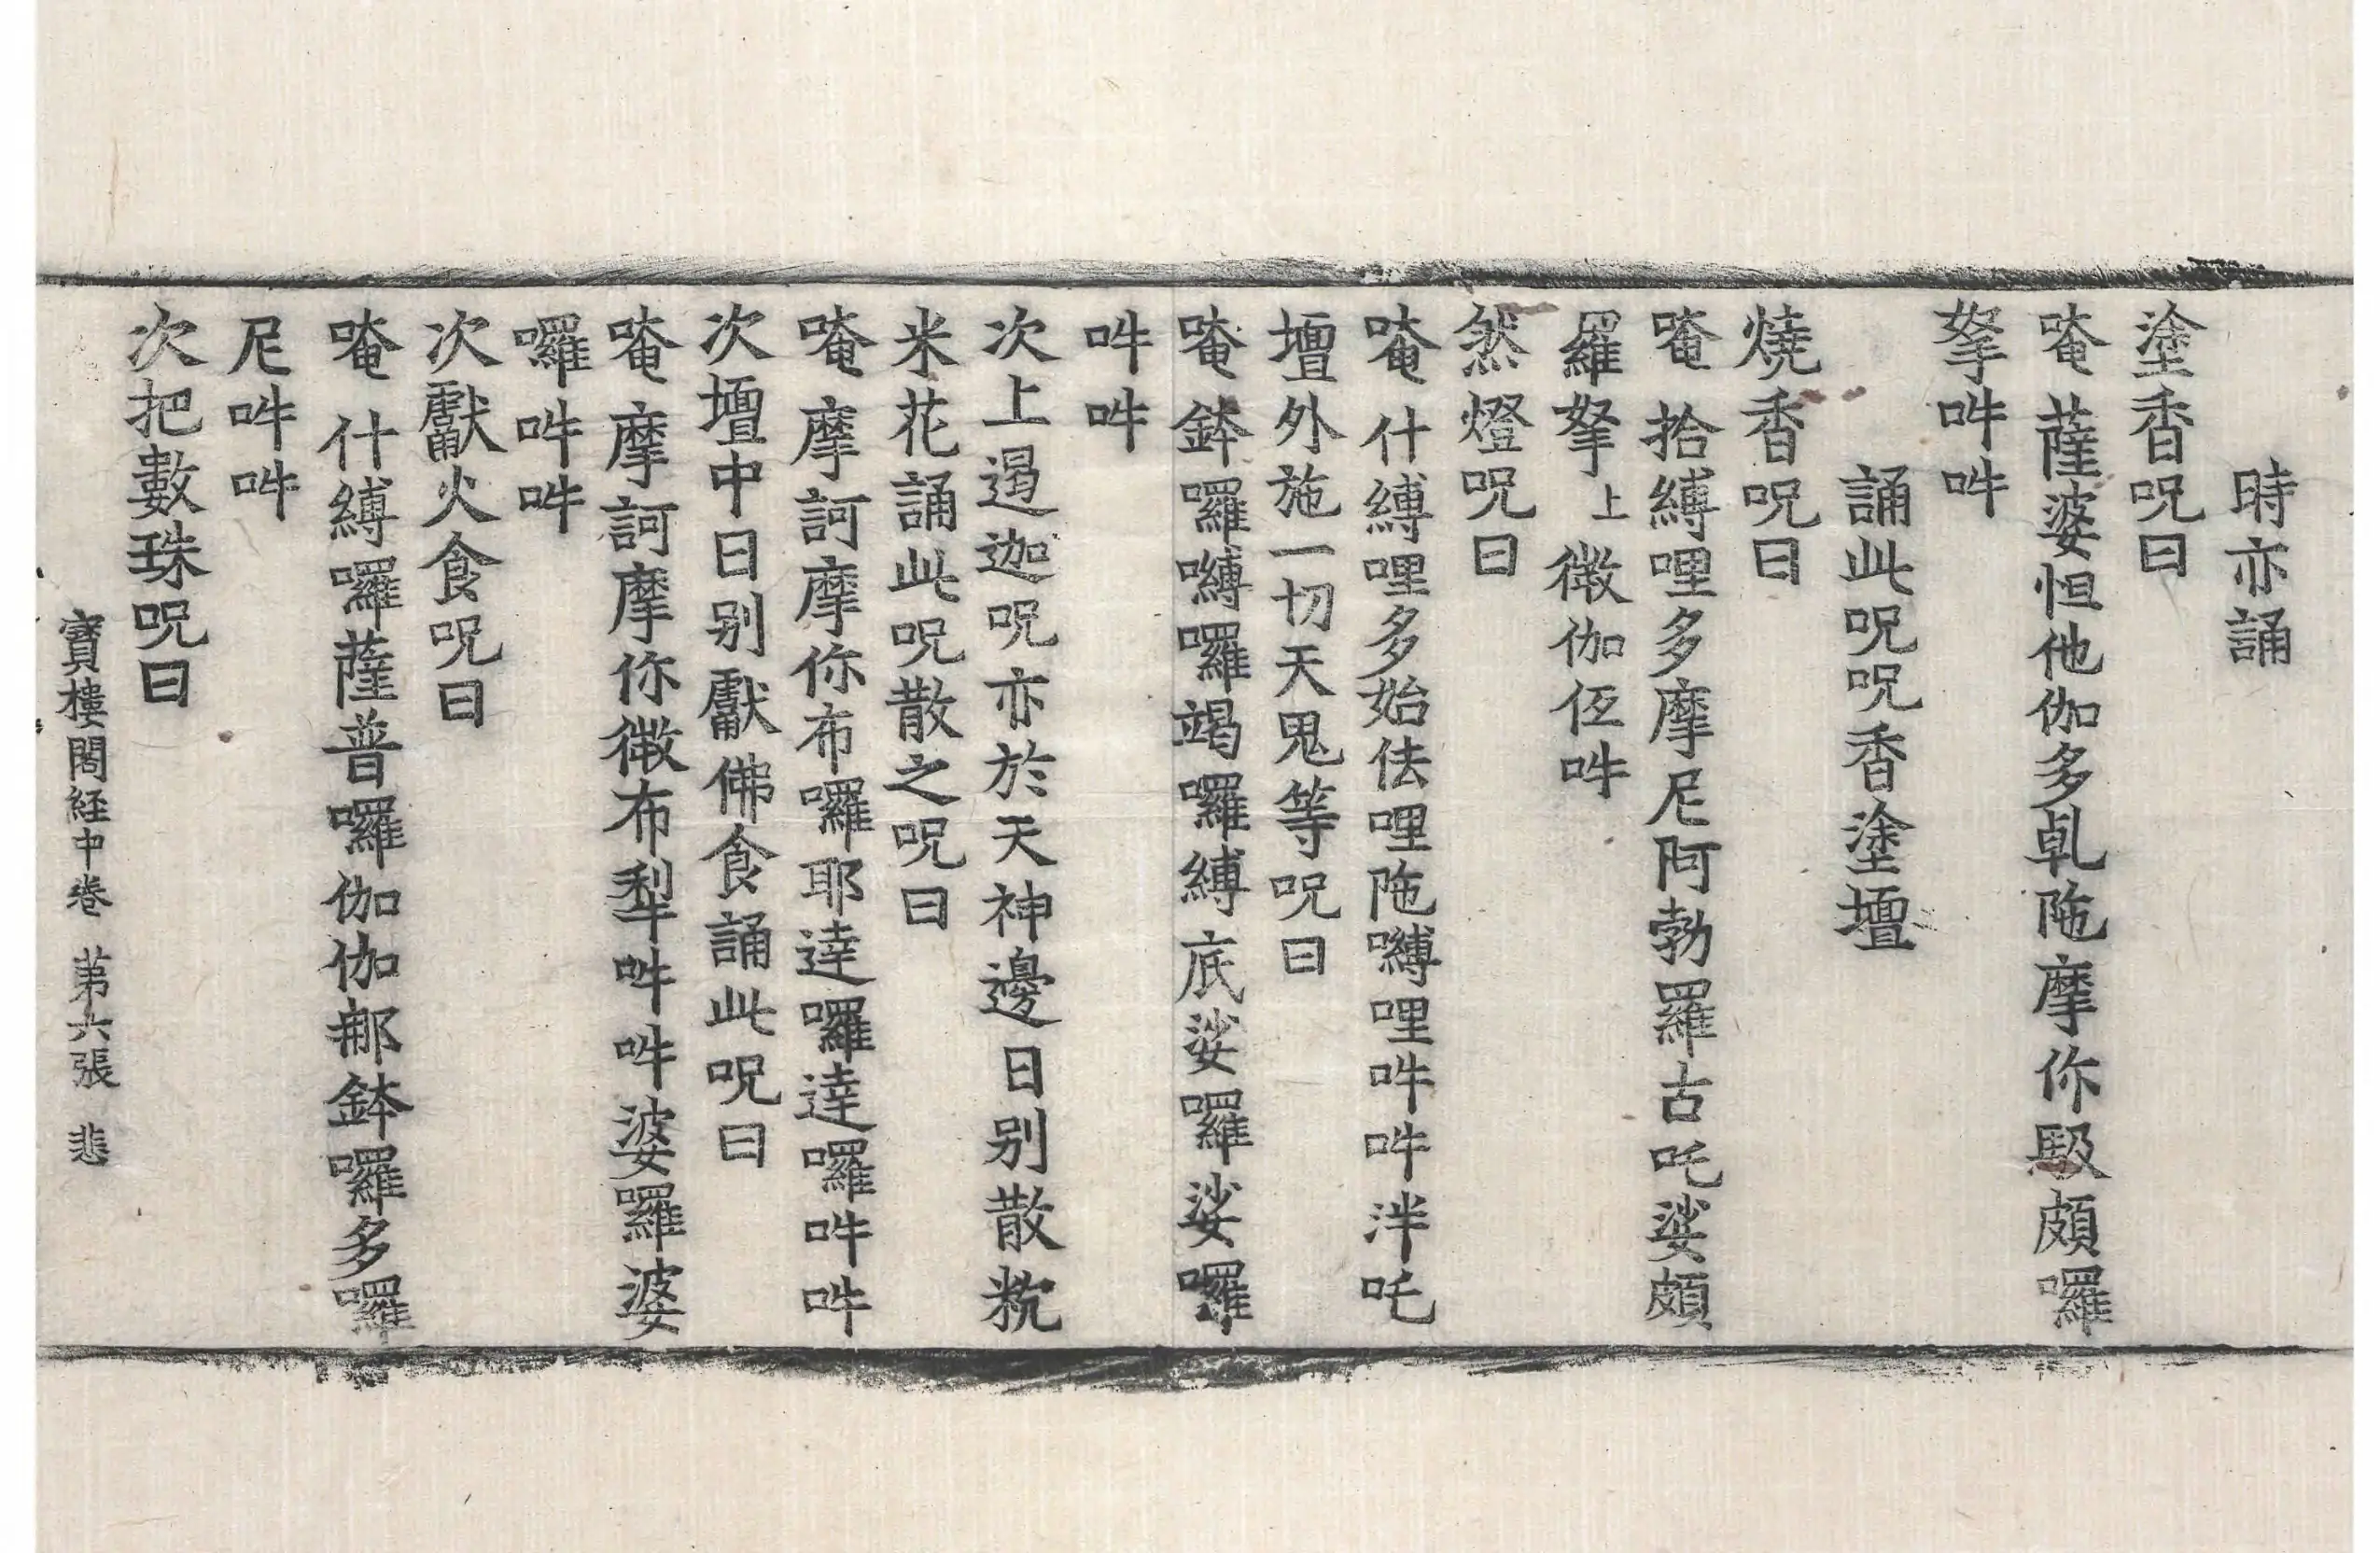 時亦誦
塗香呪曰
唵薩婆怛他伽多乹陁摩你𭮀頗囉
拏吽吽
誦此呪呪香塗壇
燒香呪曰
唵拾縛哩多摩尼阿勃羅古吒娑頗
羅拏上徵伽伍吽
然燈呪曰
唵什縛哩多始佉哩陁嚩哩吽吽泮吒
壇外施一切天鬼等呪曰
唵鉢囉嚩囉竭囉縛底娑囉娑囉
吽吽
次上遏迦呪亦於天神邊日別散粇
米花誦此呪散之呪曰
唵摩訶摩你布囉耶達囉達囉吽吽
次壇中日別獻佛食誦此呪曰
唵摩訶摩你徵布犁吽吽婆囉婆
囉吽吽
次獻火食呪曰
唵什縛囉薩普囉伽伽那鉢囉多囉
尼吽吽
次把數珠呪曰
寶樓閣経中卷 第六張 悲